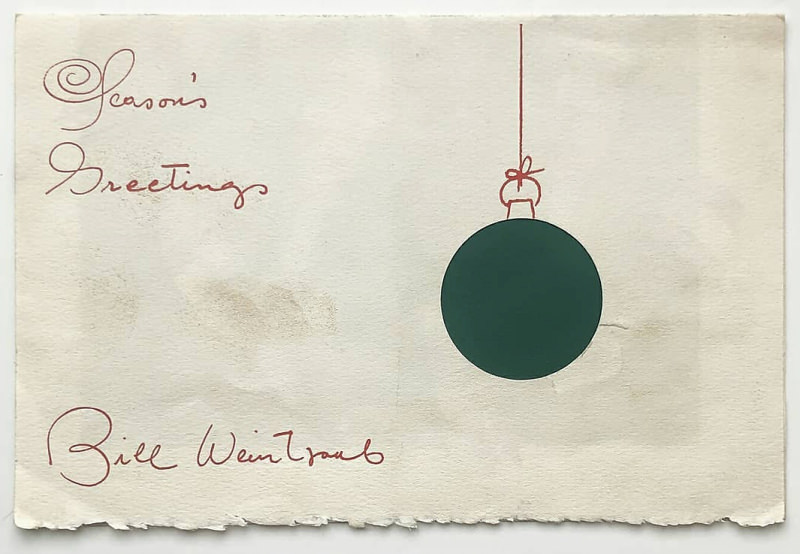 Season's
Greetings
Bill Weintraub